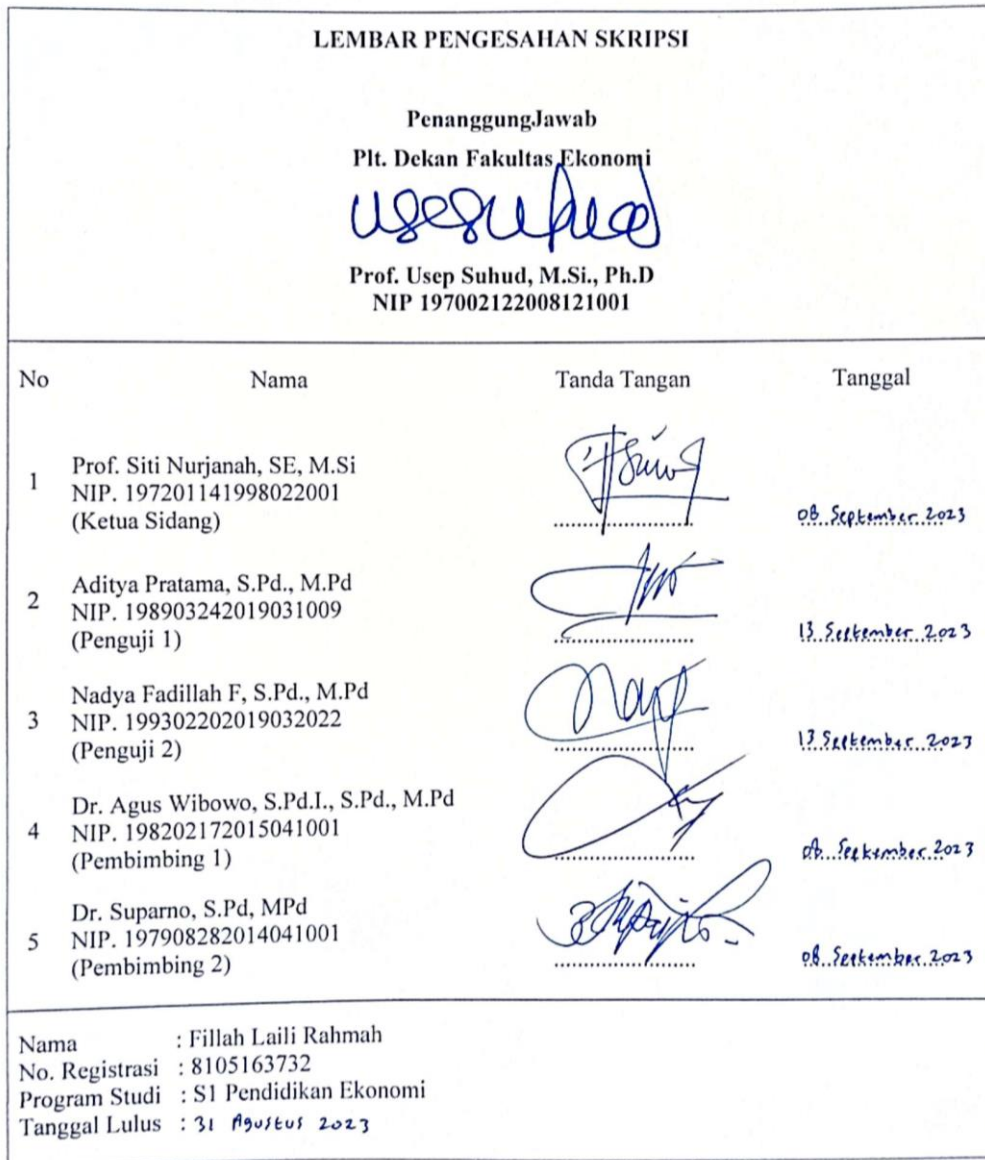 LEMBAR PENGESAHAN SKRIPSI
PenanggungJawab
Plt. Dekan Fakultas Ekonomi
Prof. Usep Suhud, M.Si., Ph.D
NIP 197002122008121001
No Nama Tanda Tangan Tanggal
1 Prof. Siti Nurjanah, SE, M.Si
NIP. 197201141998022001
(Ketua Sidang) 08 September 2023
2 Aditya Pratama, S.Pd., M.Pd
NIP. 198903242019031009
(Penguji 1) 13 September 2023
3 Nadya Fadillah F, S.Pd., M.Pd
NIP. 199302202019032022
(Penguji 2) 13 September 2023
4 Dr. Agus Wibowo, S.Pd.I., S.Pd., M.Pd
NIP. 198202172015041001
(Pembimbing 1) 08 September 2023
5 Dr. Suparno, S.Pd, MPd
NIP. 197908282014041001
(Pembimbing 2) 08 September 2023
Nama : Fillah Laili Rahmah
No. Registrasi : 8105163732
Program Studi : S1 Pendidikan Ekonomi
Tanggal Lulus : 31 Agustus 2023